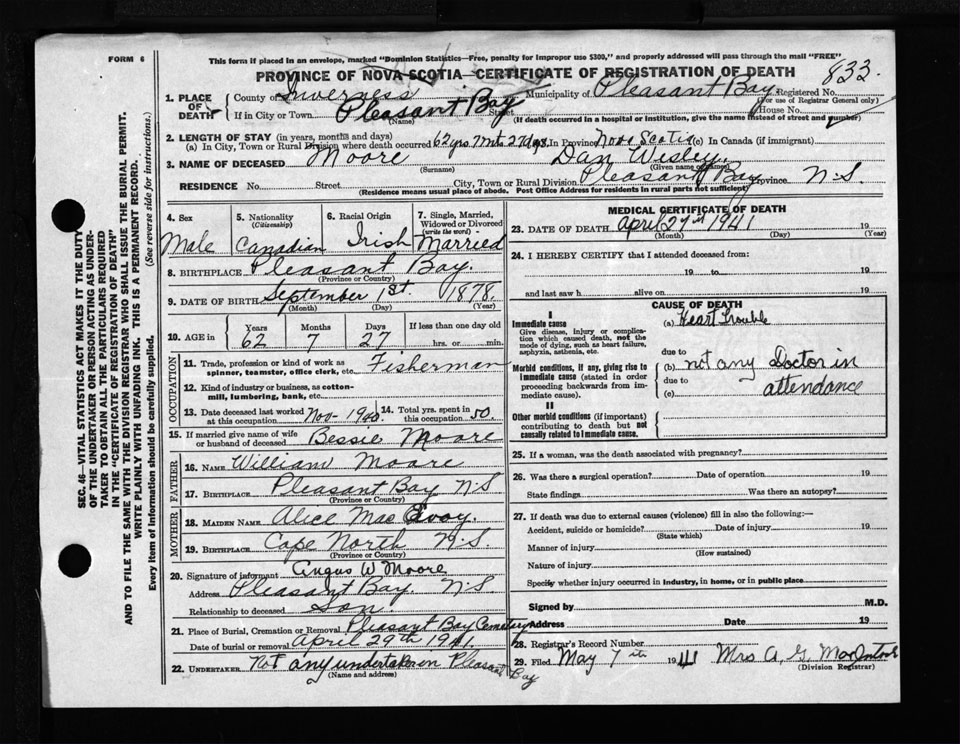 FORM 6
This form if placed in an envelope, marked "Dominion Statistics—Free, penalty for improper use $300," and properly addressed will pass through the mail "FREE"
PROVINCE OF NOVA SCOTIA—CERTIFICATE OF REGISTRATION OF DEATH
833.
1. PLACE OF DEATH
County of Inverness Municipality of Pleasant Bay. Registered No.
(For use of Registrar General only)
If in City or Town Pleasant Bay Street House No.
(Name) (If death occurred in a hospital or institution, give name instead of street and number)
2. LENGTH OF STAY (in years, months and days)
(a) In City, Town or Rural Division where death occurred 62 yrs 7 mts 27 dys. In Province Nova Scotia (c) In Canada (if immigrant)
3. NAME OF DECEASED Moore Dan Wisley.
(Surname) (Given names)
RESIDENCE No. Street City, Town or Rural Division Pleasant Bay Province N.S.
(Residence means usual place of abode. Post Office Address for residents in rural parts not sufficient)
4. Sex
Male
5. Nationality
(Citizenship)
Canadian
6. Racial Origin
Irish
7. Single, Married, Widowed or Divorced
(write the word)
Married
8. BIRTHPLACE Pleasant Bay.
(Province or Country)
9. DATE OF BIRTH September 1st. 1878.
(Month) (Day) (Year)
10. AGE in
Years Months Days If less than one day old
62 7 27 hrs. or min.
OCCUPATION
11. Trade, profession or kind of work as spinner, teamster, office clerk, etc. Fisherman
12. Kind of industry or business, as cotton-mill, lumbering, bank, etc.
13. Date deceased last worked at this occupation Nov- 1940 14. Total yrs. spent in this occupation 50.
15. If married give name of wife or husband of deceased Bessie Moore
FATHER
16. NAME William Moore
17. BIRTHPLACE Pleasant Bay N.S
(Province or Country)
MOTHER
18. MAIDEN NAME Alice Mac Evoy.
19. BIRTHPLACE Cape North N.S.
(Province or Country)
20. Signature of informant Angus W Moore
Address Pleasant Bay. N.S
Relationship to deceased Son
21. Place of Burial, Cremation or Removal Pleasant Bay Cemetery
Date of burial or removal April 29th 1941.
22. UNDERTAKER Not any undertaker in Pleasant Bay
(Name and address)
MEDICAL CERTIFICATE OF DEATH
23. DATE OF DEATH April 27th 1941 19
(Month) (Day) (Year)
24. I HEREBY CERTIFY that I attended deceased from:
19 to 19
and last saw h alive on 19
CAUSE OF DEATH
I
Immediate cause
Give disease, injury or complication which caused death, not the mode of dying, such as heart failure, asphyxia, asthenia, etc.
(a) Heart Trouble
due to
Morbid conditions, if any, giving rise to immediate cause (stated in order proceeding backwards from immediate).
(b) not any Doctor in
due to
(c) attendance
II
Other morbid conditions (if important) contributing to death but not causally related to immediate cause.
25. If a woman, was the death associated with pregnancy?
26. Was there a surgical operation? Date of operation 19
State findings Was there an autopsy?
27. If death was due to external causes (violence) fill in also the following:—
Accident, suicide or homicide? Date of injury 19
(State which)
Manner of injury
(How sustained)
Nature of injury
Specify whether injury occurred in industry, in home, or in public place
Signed by M.D.
Address Date 19
28. Registrar's Record Number
29. Filed May 7th 1941 Mrs A. G. MacIntosh
(Division Registrar)
SEC. 46—VITAL STATISTICS ACT MAKES IT THE DUTY
OF THE UNDERTAKER OR PERSON ACTING AS UNDER-
TAKER TO OBTAIN ALL THE PARTICULARS REQUIRED
IN THE "CERTIFICATE OF REGISTRATION OF DEATH"
AND TO FILE THE SAME WITH THE DIVISION REGISTRAR WHO SHALL ISSUE THE BURIAL PERMIT.
WRITE PLAINLY WITH UNFADING INK. THIS IS A PERMANENT RECORD.
Every item of information should be carefully supplied. (See reverse side for instructions.)